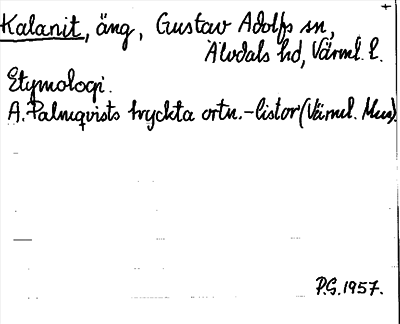 +
Kalanit, äng, Gustav Adolfs sn,
Älvdals hd, Värml. l.
Etymologi.
A. Palmqvists tryckta ortn.-listor (Värml. Mus).
P.G. 1957.